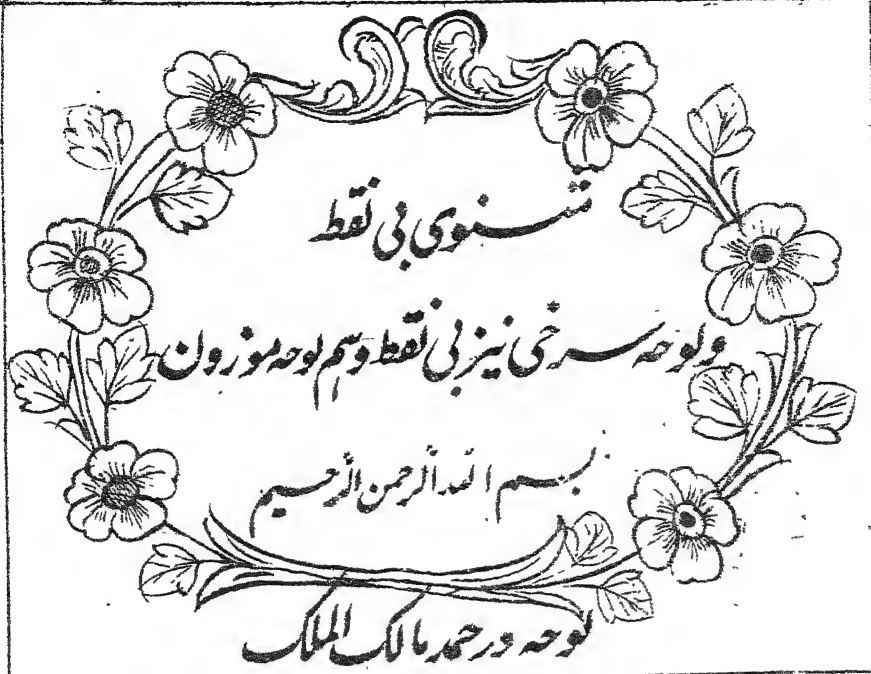 مثنوی بی نقط
ولوحه سرخی نیز بی نقط وہم لوحه موزون
بسم اللہ الرحمن الرحیم
لوحه در حمد مالک الملک